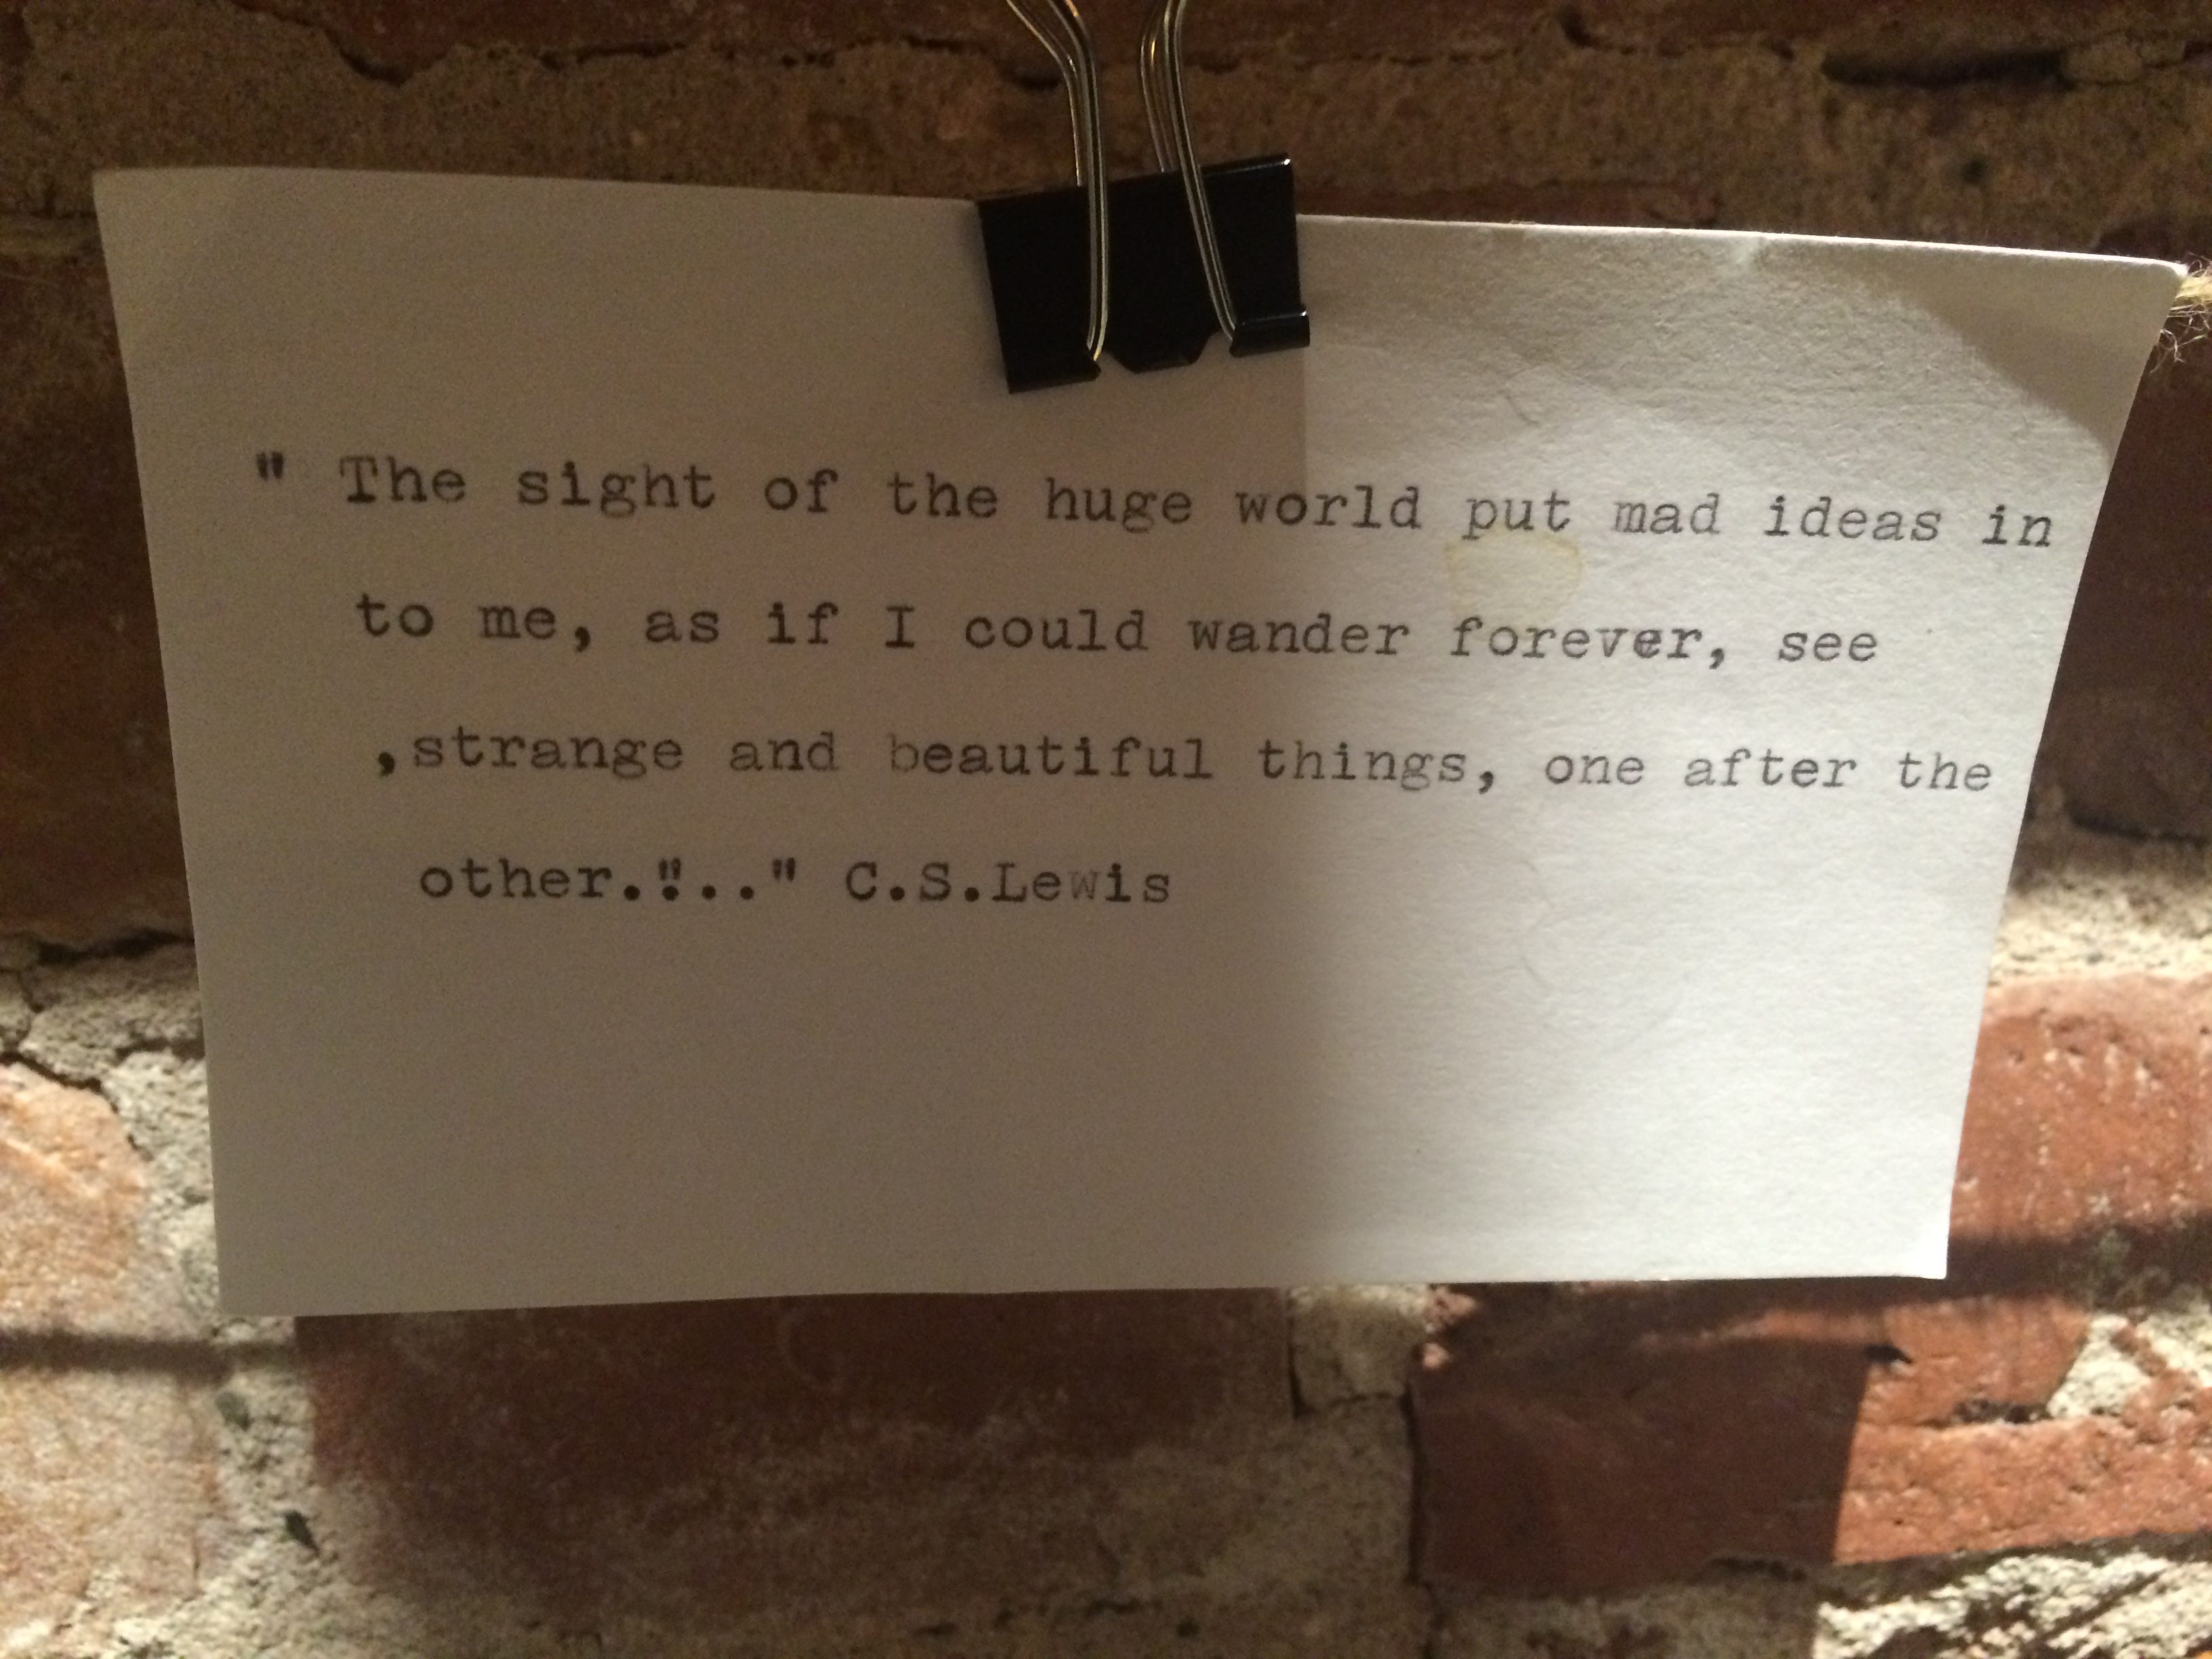 " The sight of the huge world put mad ideas in
to me, as if I could wander forever, see
,strange and beautiful things, one after the
other."..." C.S.Lewis